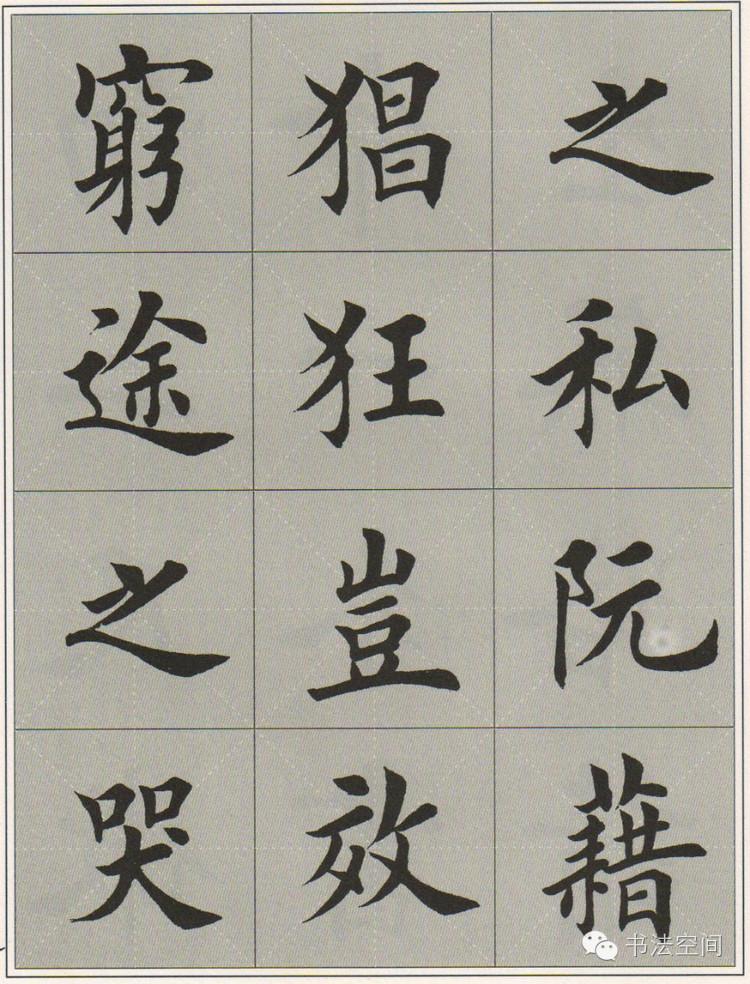 之私阮藉
猖狂豈效
窮途之哭
书法空间